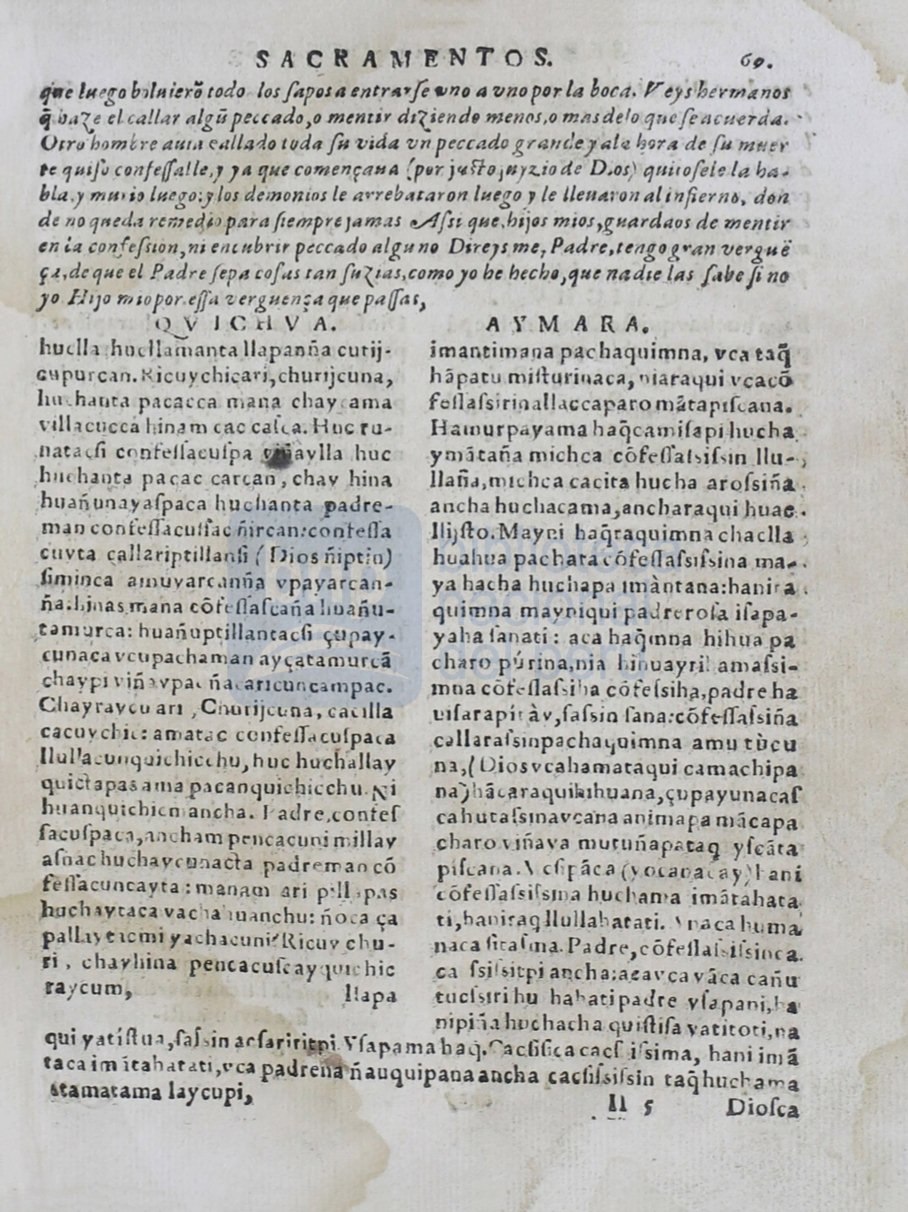 SACRAMENTOS. 69.
que luego boluierõ todo los sapos a entrarse vno a vno por la boca. Veys hermanos
q̃ haze el callar algũ peccado, o mentir diziendo menos, o mas de lo que se acuerda.
Otro hombre auia callado toda su vida vn peccado grande y ala hora de su muer
te quiso confessalle, y ya que començaua (por justo juyzio de Dios) quitosele la ha-
bla, y murio luego: y los demonios le arrebataron luego y le lleuaron al infierno, don
de no queda remedio para siempre jamas Assi que, hijos mios, guardaos de mentir
en la confession, ni encubrir peccado alguno Direys me, Padre, tengo gran verguẽ
ça, de que el Padre sepa cosas tan suzias, como yo he hecho, que nadie las sabe si no
yo Hijo mio por essa verguença que passas,
QVICHVA.
huclla huclla manta llapanña cutij-
cupurcan. Ricuychicari, churijcuna,
huchanta pacacca mana chay ama
villacucca hinam cac casca. Huc ru-
natacsi confessacuspa viñaylla huc
huchanta pacac carcan, chay hina
huañunayaspaca huchanta padre-
man confessacussac ñircan: confessa
cuyta callariptillansi (Dios ñiptin)
siminca amuyarcanña vpayarcan-
ña. hinas mana cõfessascaña huañu-
tamurca: huañuptillantacsi çupay-
cunaca vcupachaman ayçatamurcã
chaypi viñaypac ñacaricuncampac.
Chayraycu ari, Churijcuna, cacilla
cacuychic: amatac confessacuspaca
llullacunquichicchu, huc huchallay
quictapas ama pacanquichicchu. Ñi
huanquichicm ancha. Padre, confes
sacuspaca, ancham pencacuni millay
asnac huchaycunacta padreman cõ
fessacuncayta: manam ari pillapas
huchaytaca yachahuanchu: ñoca ça
pallaytacmi yachacuni? Ricuy chu-
ri, chayhina pencacuscayquichic
raycum, llapa
AYMARA.
imantimana pachaquimna, vca taq̃
hãpatu misturinaca, niaraqui vcacõ
fessassirinallaccaparo mãtapiscana.
Hamurpayama haq̃camisapi hucha
ymãtaña michca cõfessassissin llu-
llaña, michca cacita hucha arossiña
ancha huchacama, ancharaqui huac
llijsto. Mayni haq̃raquimna chaclla
huahua pachata cõfessassissina ma-
ya hacha huchapa imàntana: hanirà
quimna mayniqui padrerosa isapa-
yaha sanati: aca haq̃mna hihua pa
charo púrina, nia hihuayril amassi-
mna cõfessassiha cõfessiha, padre ha
sassin sana: cõfessassiña
callarassinpachaquimna amu tùcu
na, (Dios vcahamataqui camachipa
na) çupayunacas
cahutassinavcana animapa mãcapa
charo viñaya mutuñapataq̃ yscãta
piscana.
cõfessassissina huchama imãtahata
ti, haniraq̃ llullahatati.
naca sitasma. Padre, cõfessassissinca
ancha: acavca vãca cañu
padre vsapani,
nipiña huchacha quistisa yatitoti, na
qui yatístua, sassin Vsapama haq̃. hani imã
taca imítahatati, vca padrena ñauquipana ancha cacsississin taq̃huchama
atamatama laycupi,
Ll 5 Diosca